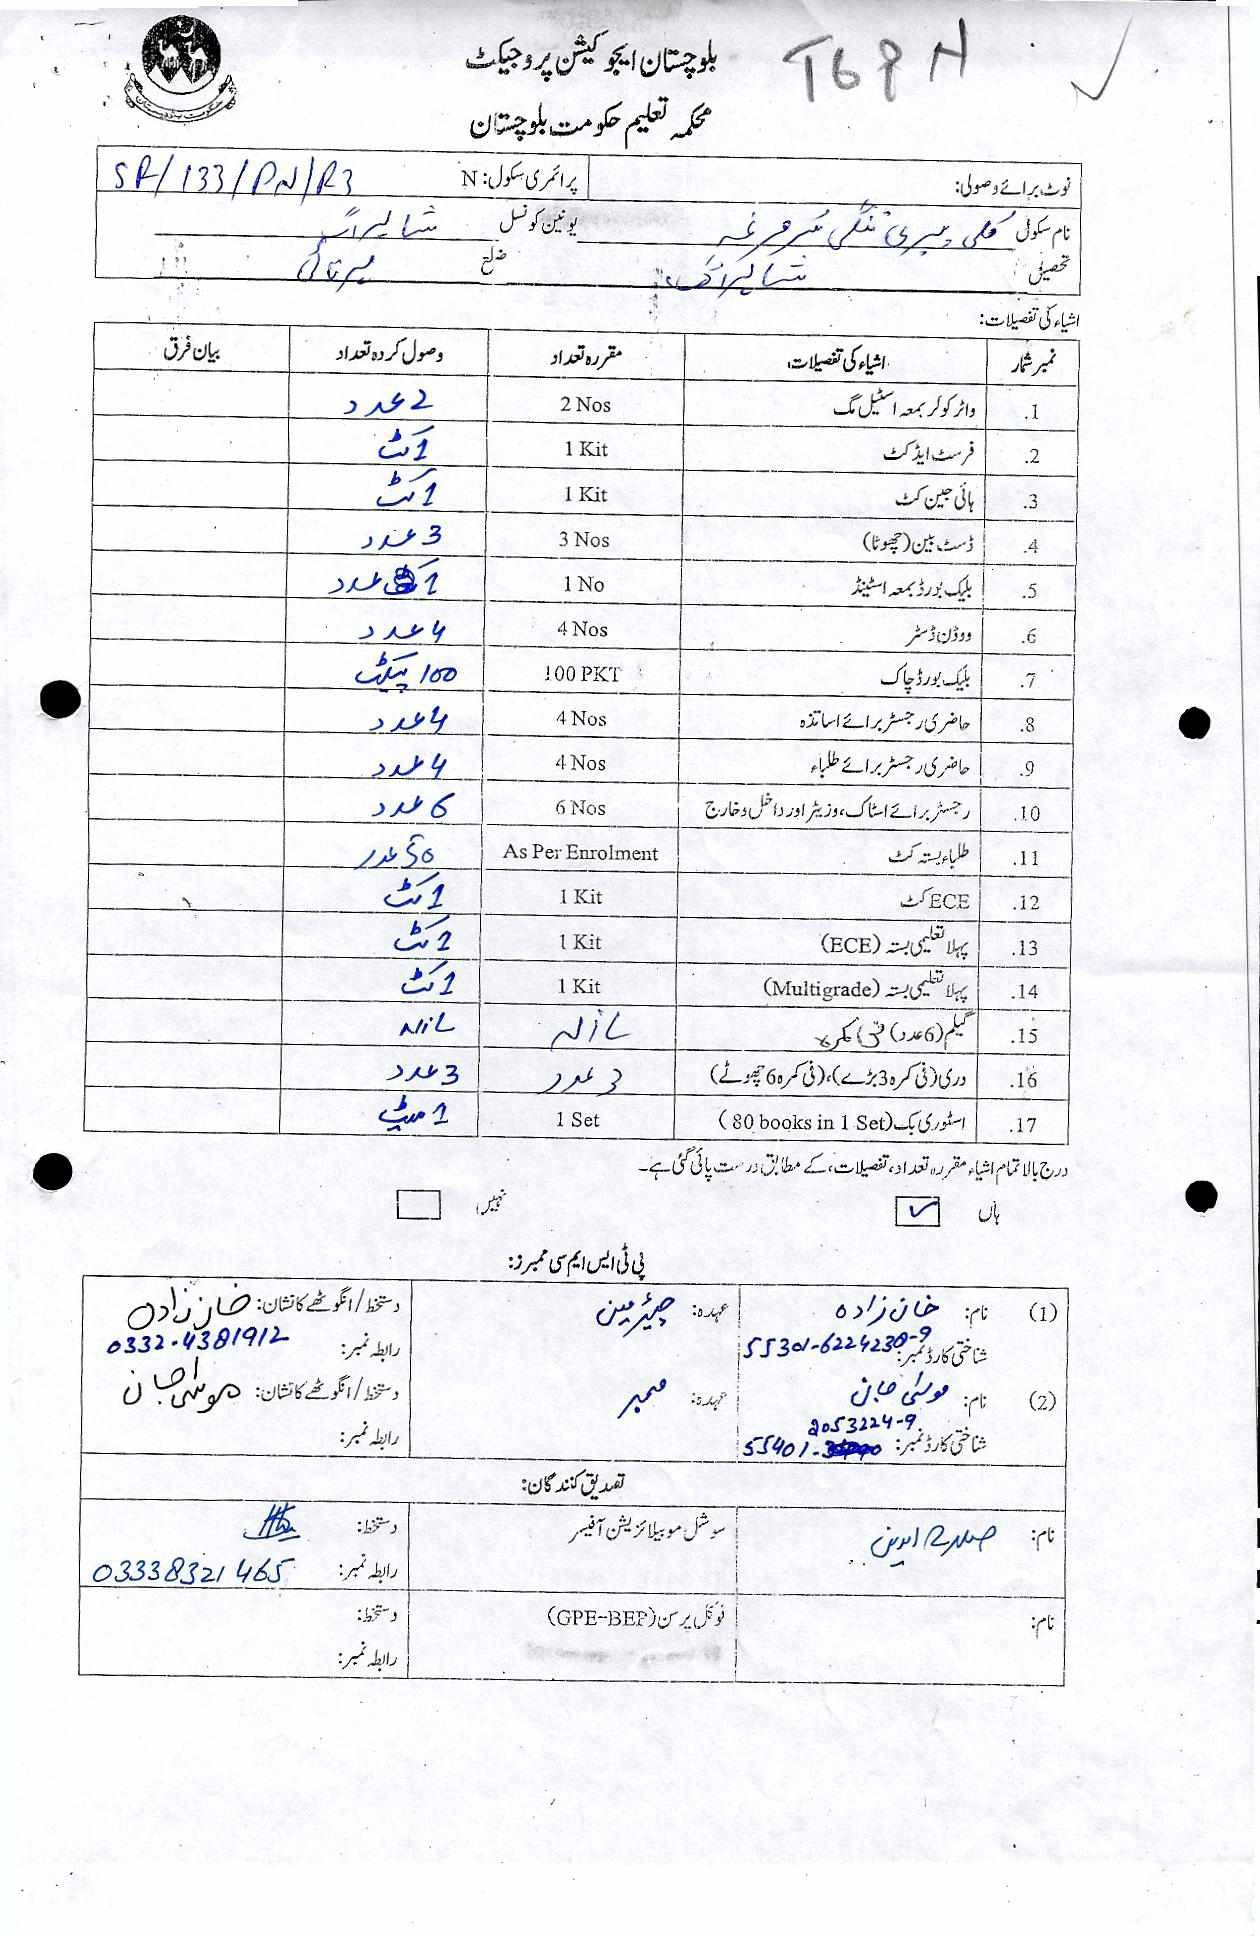 بلوچستان ایجوکیشن پروجیکٹ
محکمہ تعلیم حکومت بلوچستان
نوٹ برائے وصولی: پرائمری سکول: N SR/133/PN/R3
نام سکول کلی یونین کونسل
تحصیل ضلع
اشیاء کی تفصیلات:
نمبر شمار اشیاء کی تفصیلات مقررہ تعداد وصول کردہ تعداد بیان فرق
1. واٹر کولر بمعہ اسٹیل مگ 2 Nos 2 عدد
2. فرسٹ ایڈ کٹ 1 Kit 1 کٹ
3. ہائی جین کٹ 1 Kit 1 کٹ
4. ڈسٹ بین (چھوٹا) 3 Nos 3 عدد
5. بلیک بورڈ بمعہ اسٹینڈ 1 No 1 عدد
6. ووڈن ڈسٹر 4 Nos 4 عدد
7. بلیک بورڈ چاک 100 PKT 100 پیکٹ
8. حاضری رجسٹر برائے اساتذہ 4 Nos 4 عدد
9. حاضری رجسٹر برائے طلباء 4 Nos 4 عدد
10. رجسٹر برائے اسٹاک، وزیٹر اور داخل و خارج 6 Nos 6 عدد
11. طلباء بستہ کٹ As Per Enrolment 50 عدد
12. ECE کٹ 1 Kit 1 کٹ
13. پہلا تعلیمی بستہ (ECE) 1 Kit 1 کٹ
14. پہلا تعلیمی بستہ (Multigrade) 1 Kit 1 کٹ
15. گیلم (6 عدد) فی کمرہ
16. دری (فی کمرہ 3 بڑے)، (فی کمرہ 6 چھوٹے) 3 عدد 3 عدد
17. اسٹوری بک (80 books in 1 Set) 1 Set 1 سیٹ
درج بالا تمام اشیاء مقررہ تعداد، تفصیلات، کے مطابق درست پائی گئی ہے۔
ہاں ✓ نہیں
پی ٹی ایس ایم سی ممبرز:
(1) نام: خان زادہ عہدہ: چیئرمین دستخط/انگوٹھے کا نشان: خان زادہ
شناختی کارڈ نمبر: 55301-6224238-9 رابطہ نمبر: 0332-4381912
(2) نام: موسیٰ جان عہدہ: ممبر دستخط/انگوٹھے کا نشان: موسیٰ جان
شناختی کارڈ نمبر: 55401-2053224-9 رابطہ نمبر:
تصدیق کنندگان:
نام: سوشل موبیلائزیشن آفیسر دستخط:
رابطہ نمبر: 03338321465
نام: فوکل پرسن (GPE-BEP) دستخط:
رابطہ نمبر: